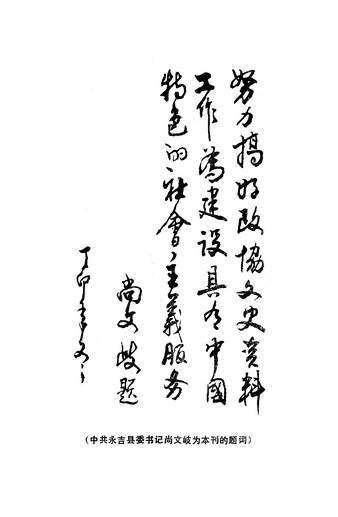 努力搞好政協文史资料
工作為建设具有中國
特色的社會主義服务
尚文歧题
丁卯年冬
(中共永吉县委书记尚文岐为本刊的题词)